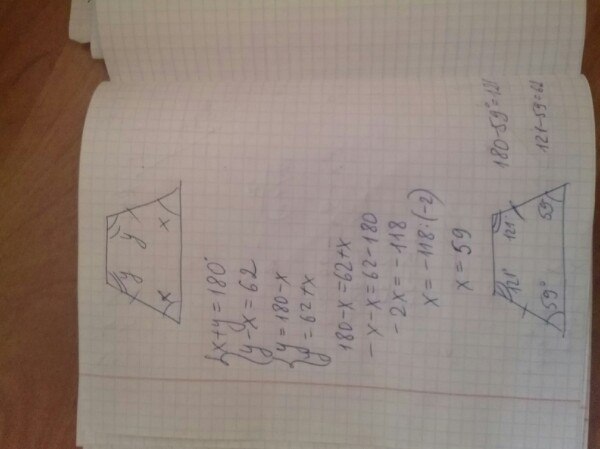 y y
x x
{x+y=180°
{y-x=62
{y=180-x
{y=62+x
180-x=62+x
-x-x=62-180
-2x=-118
x=-118:(-2)
x=59
121° 121°
59° 59°
180-59°=121
121-59=62